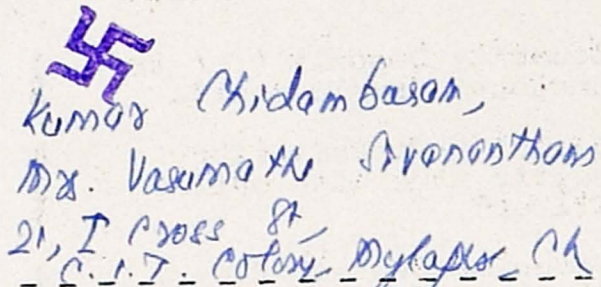 Kumar Chidambaram,
Mr. Vasumathi Sivananthan
21, I Cross St
C.I.T. Colony Mylapor Ch